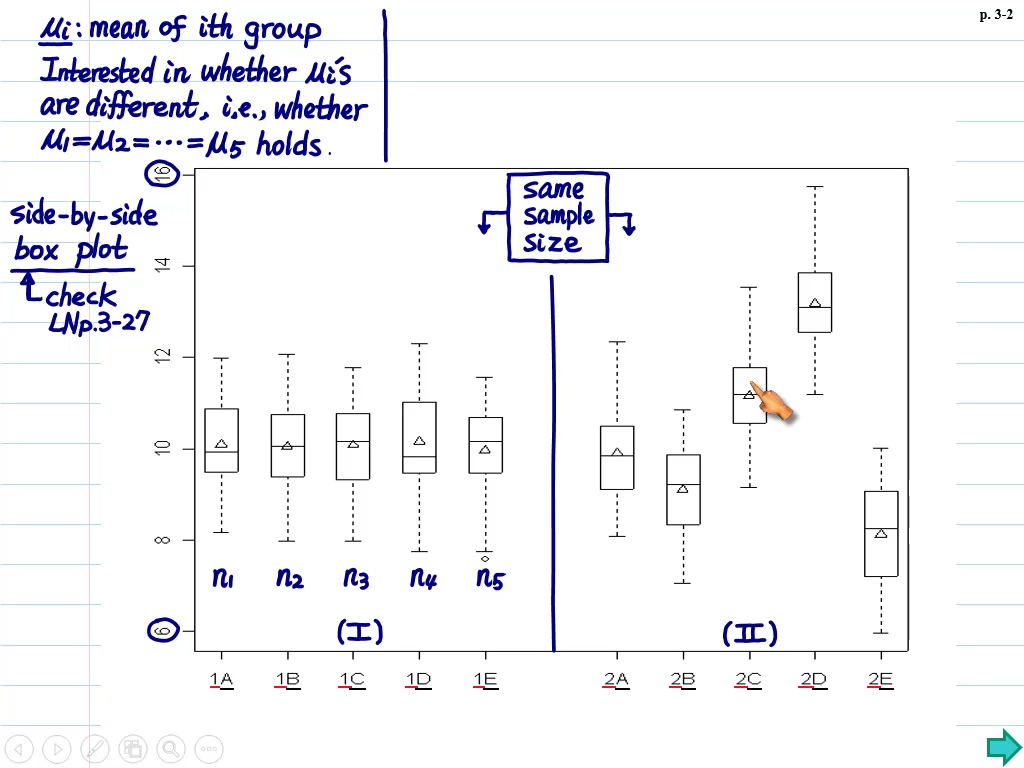 p. 3-2
μi: mean of ith group
Interested in whether μi's
are different, i.e., whether
μ1=μ2=⋯=μ5 holds.
side-by-side
box plot
check
LNp.3-27
same
sample
size
16
14
12
10
8
6
n1 n2 n3 n4 n5
(I) (II)
1A 1B 1C 1D 1E 2A 2B 2C 2D 2E